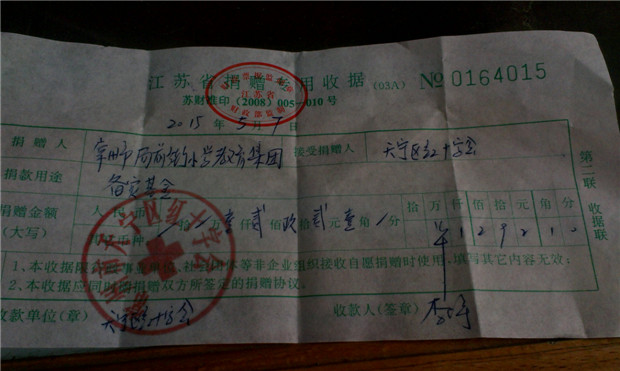 江苏省捐赠专用收据 (03A) № 0164015
苏财准印(2008)005-010号
2015年5月7日
捐赠人 常州市局前街小学教育集团 接受捐赠人 天宁区红十字会
捐款用途 备灾基金
捐赠金额(大写) 人民币 壹仟贰佰玖拾贰元壹角 分 十万仟佰拾元角分
币种 ¥129210
1、本收据限 社会团体等非企业组织接收自愿捐赠时使用,填写其它内容无效;
2、本收据应同 捐赠双方所签定的捐赠协议。
收款单位(章) 天宁区红十字会 收款人(签章)
第二联 收据联